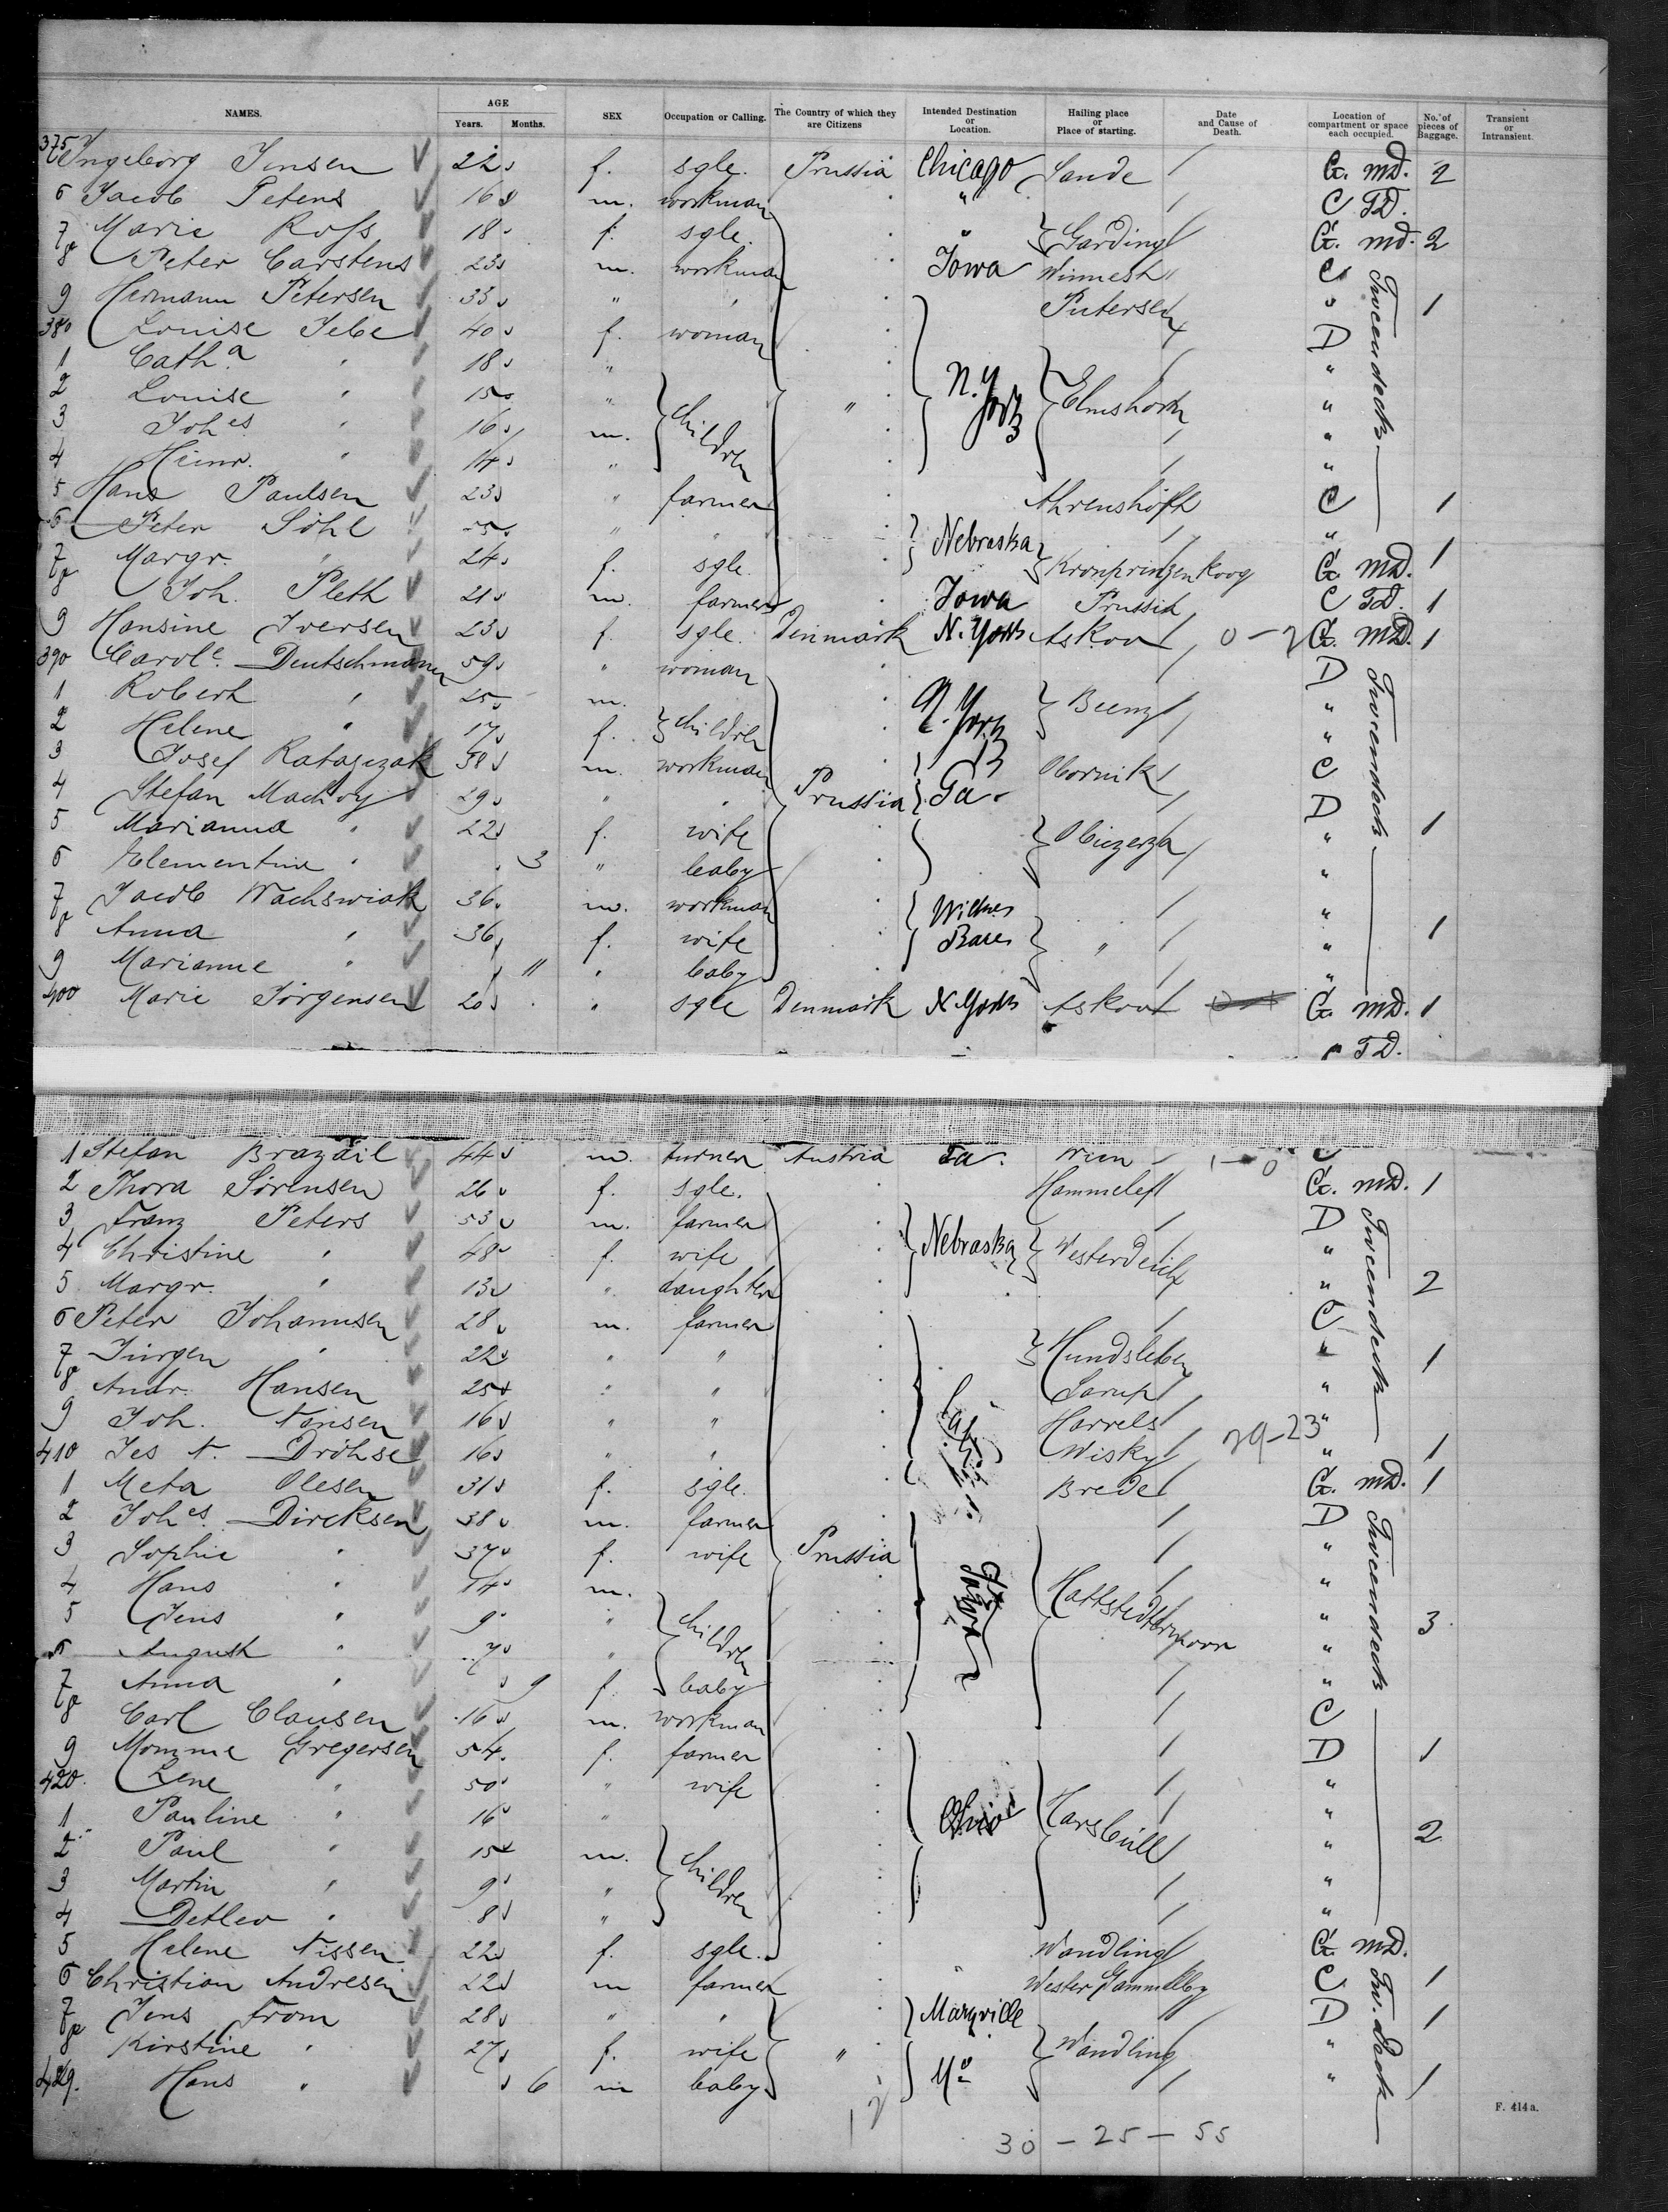 NAMES. AGE SEX Occupation or Calling. The Country of which they are Citizens Intended Destination or Location. Hailing place or Place of starting. Date and Cause of Death. Location of compartment or space each occupied. No. of pieces of Baggage. Transient or Intransient.
Years. Months.
375 Ingeborg Jensen 22 f. sgle. Prussia Chicago Sande G. md. 2
6 Jacob Peters 16 m. workman " C TD.
7 Marie Ross 18 f. sgle. " Garding G. md. 2
8 Peter Carstens 23 m. workman Iowa C Tweendeck
9 Hermann Petersen 33 " " " 1
380 Louise Jebe 40 f. woman D
1 Cath.a " 18 " "
2 Louise " 15 " " N. York Elmshorn "
3 Johes " 16 m. children "
4 Heinr. " 14 " "
5 Hans Paulsen 23 " farmer Ahrenshöft C 1
6 Peter Söhl " " Nebraska "
7 Margr. " 24 f. sgle. Kronprinzenkoog G. md. 1
8 Joh. Pleth 21 m. farmer Iowa Prussia C TD. 1
9 Hansine Iversen 23 f. sgle. Denmark N. York Askov G. md. 1
390 Carole. Deutschmann 59 " woman D Tweendeck
1 Robert " 25 m. N. York "
2 Helene " 17 f. children "
3 Josef Ratajczak 38 m. workman Obornik C
4 Stefan 29 " " Prussia Pa. D
5 Marianna " 22 f. wife " 1
6 Klementine " 3 " baby "
7 Jacob 36 m. workman Wilkes "
8 Anna " 36 f. wife Barre " " 1
9 Marianne " 11 " baby "
400 Marie Jörgensen 20 " sgle Denmark N York Askov G. md. 1
TD.
1 Stefan Brazdil 44 m. turner Austria Pa. Wien 1 - 0 C
2 Thora Sörensen 26 f. sgle. Hammeleff G. md. 1
3 Franz Peters 53 m. farmer D Tweendeck
4 Christine " 48 f. wife Nebraska Westerdeich "
5 Margr. " 13 " daughter " 2
6 Peter Johannsen 28 m. farmer C
7 Jürgen " 22 " " " 1
8 Andr. Hansen 25 " " Sarup "
9 Joh. Nansen 16 " " "
410 Jes N. Dröhse 16 " " Wisky 29-23 " 1
1 Meta Olesen 31 f. sgle. Brede G. md. 1
2 Johes. Dircksen 38 m. farmer D Tweendeck
3 Sophie " 37 f. wife Prussia "
4 Hans " 14 m. "
5 Jens " 9 " children " 3
6 August " 7 " "
7 Anna " 9 f. baby "
8 Carl Clausen 16 m. workman C
9 Momme Gregersen 54 f. farmer D 1
420. Lene " 50 " wife "
1 Pauline " 16 " Ohio "
2 Paul " 15 m. children " 2
3 Martin " 9 " "
4 Detlev " 8 " "
5 Helene Nissen 22 f. sgle. Wandling G. md.
6 Christian Andresen 22 m farmer " Wester Gammelby C Tw. Deck 1
7 Jens From 28 " " Maryville D 1
8 Kirstine " 27 f. wife " Mo Wandling "
429. Hans " 6 m baby " 1
30 - 25 - 55
F. 414 a.